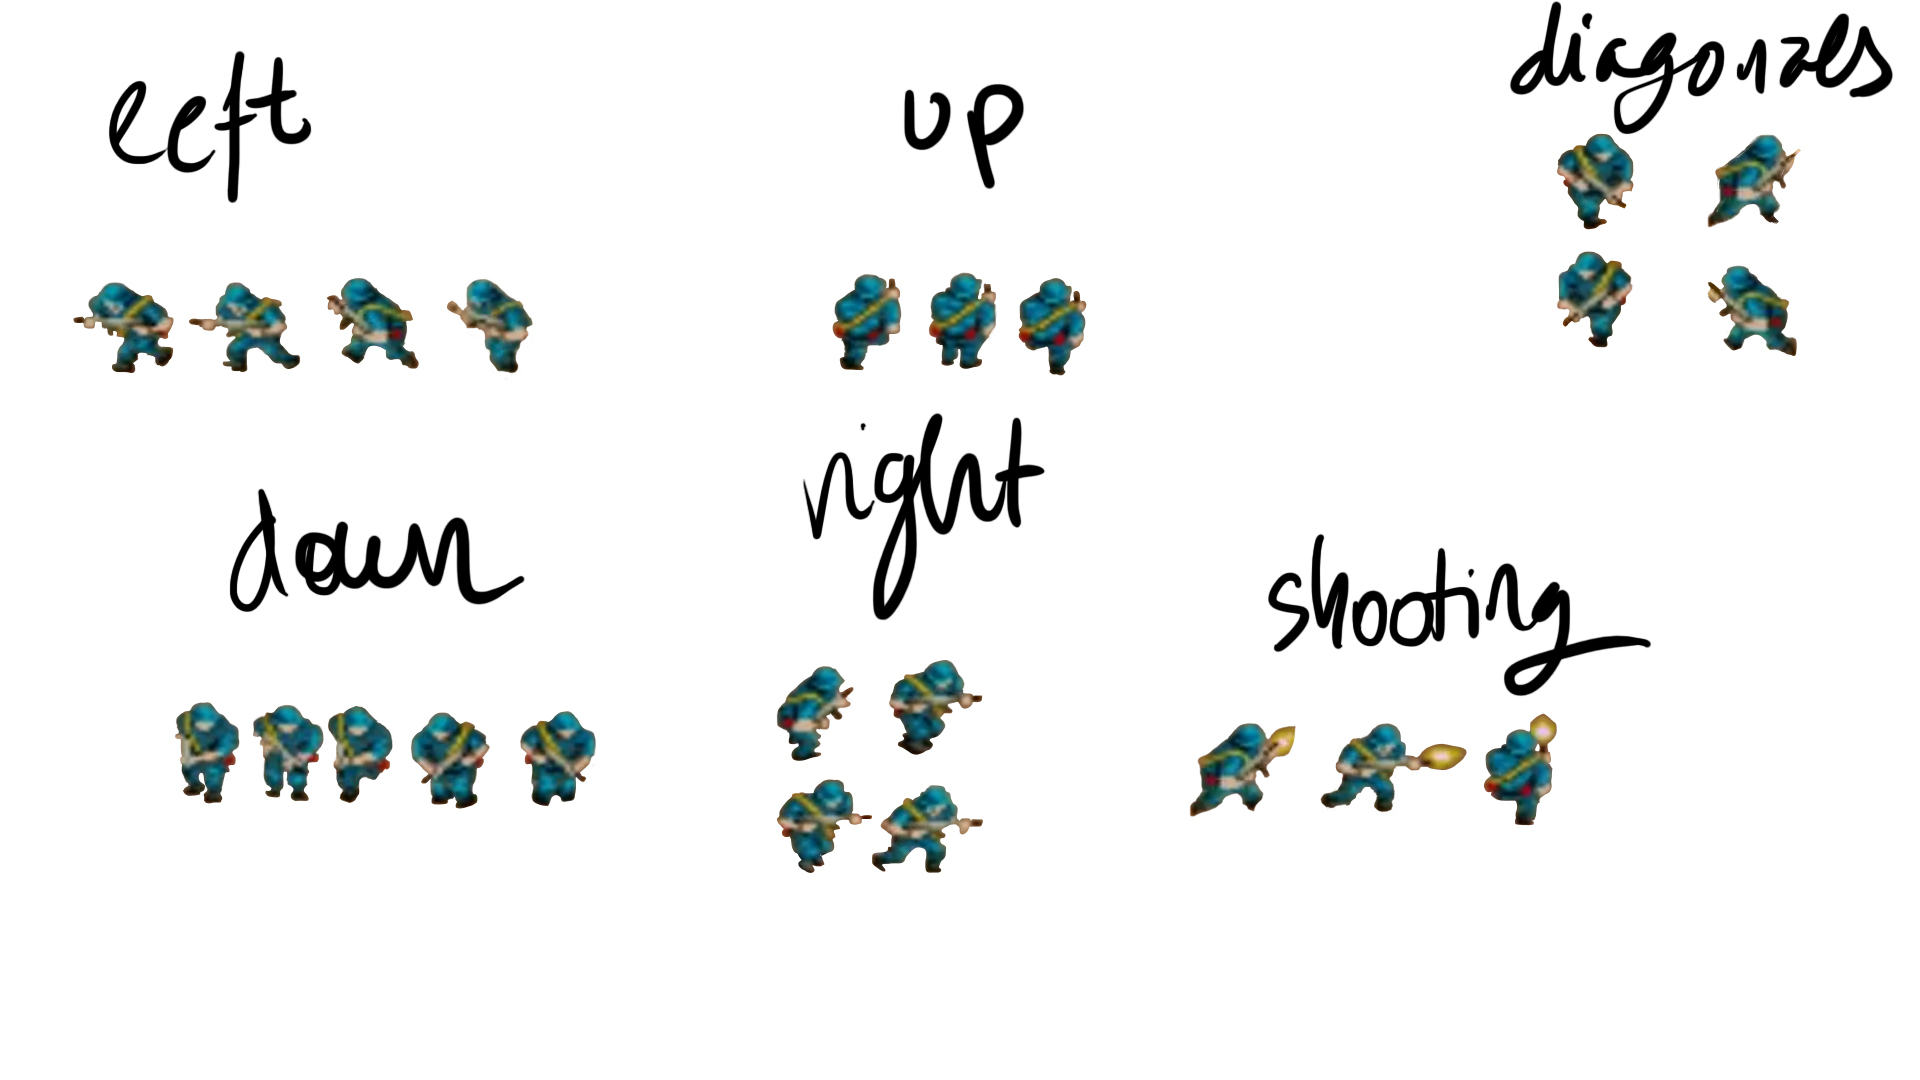 left
up
diagonals
down
right
shooting